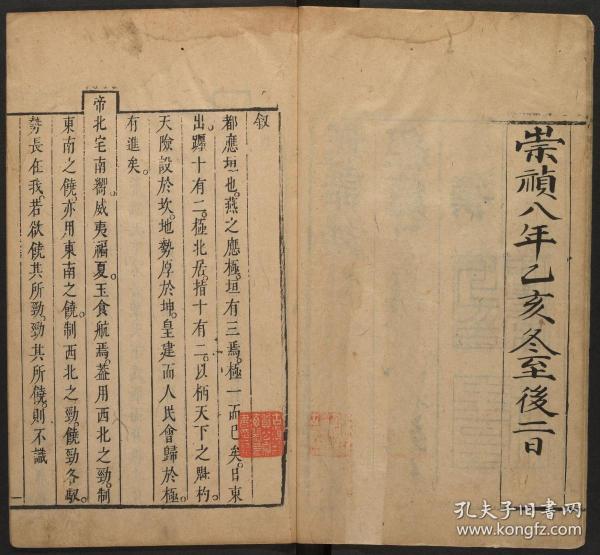 崇禎八年乙亥冬至後二日
叙
都應垣也燕之應極垣有三焉極一而已矣日東
出躔十有二極北居指十有二以柄天下之
天險設於坎地勢厚於坤皇建而人民會歸於極
有進矣
帝北宅南嚮威夷福夏玉食航焉蓋用西北之勁制
東南之饒亦用東南之饒制西北之勁饒勁各馭
勢長在我若欲饒其所勁勁其所饒則不識
孔夫子旧书网
www.kongfz.com